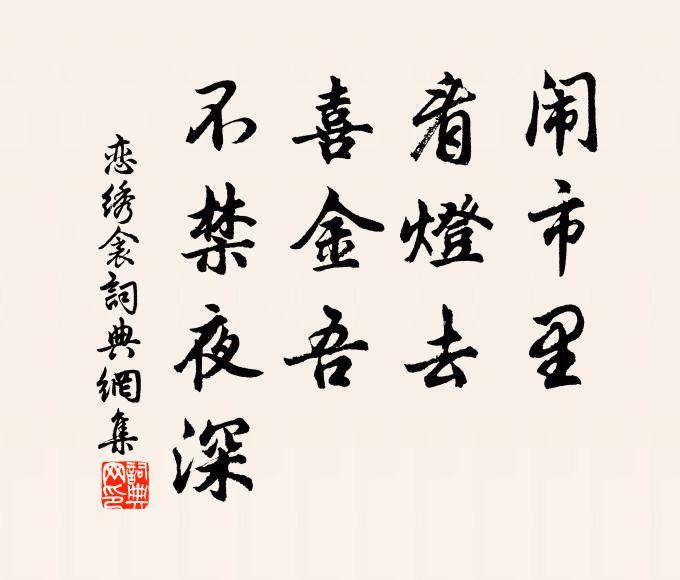 闹市里
看燈去
喜金吾
不禁夜深
恋绣衾詞典網集
詞典
网印